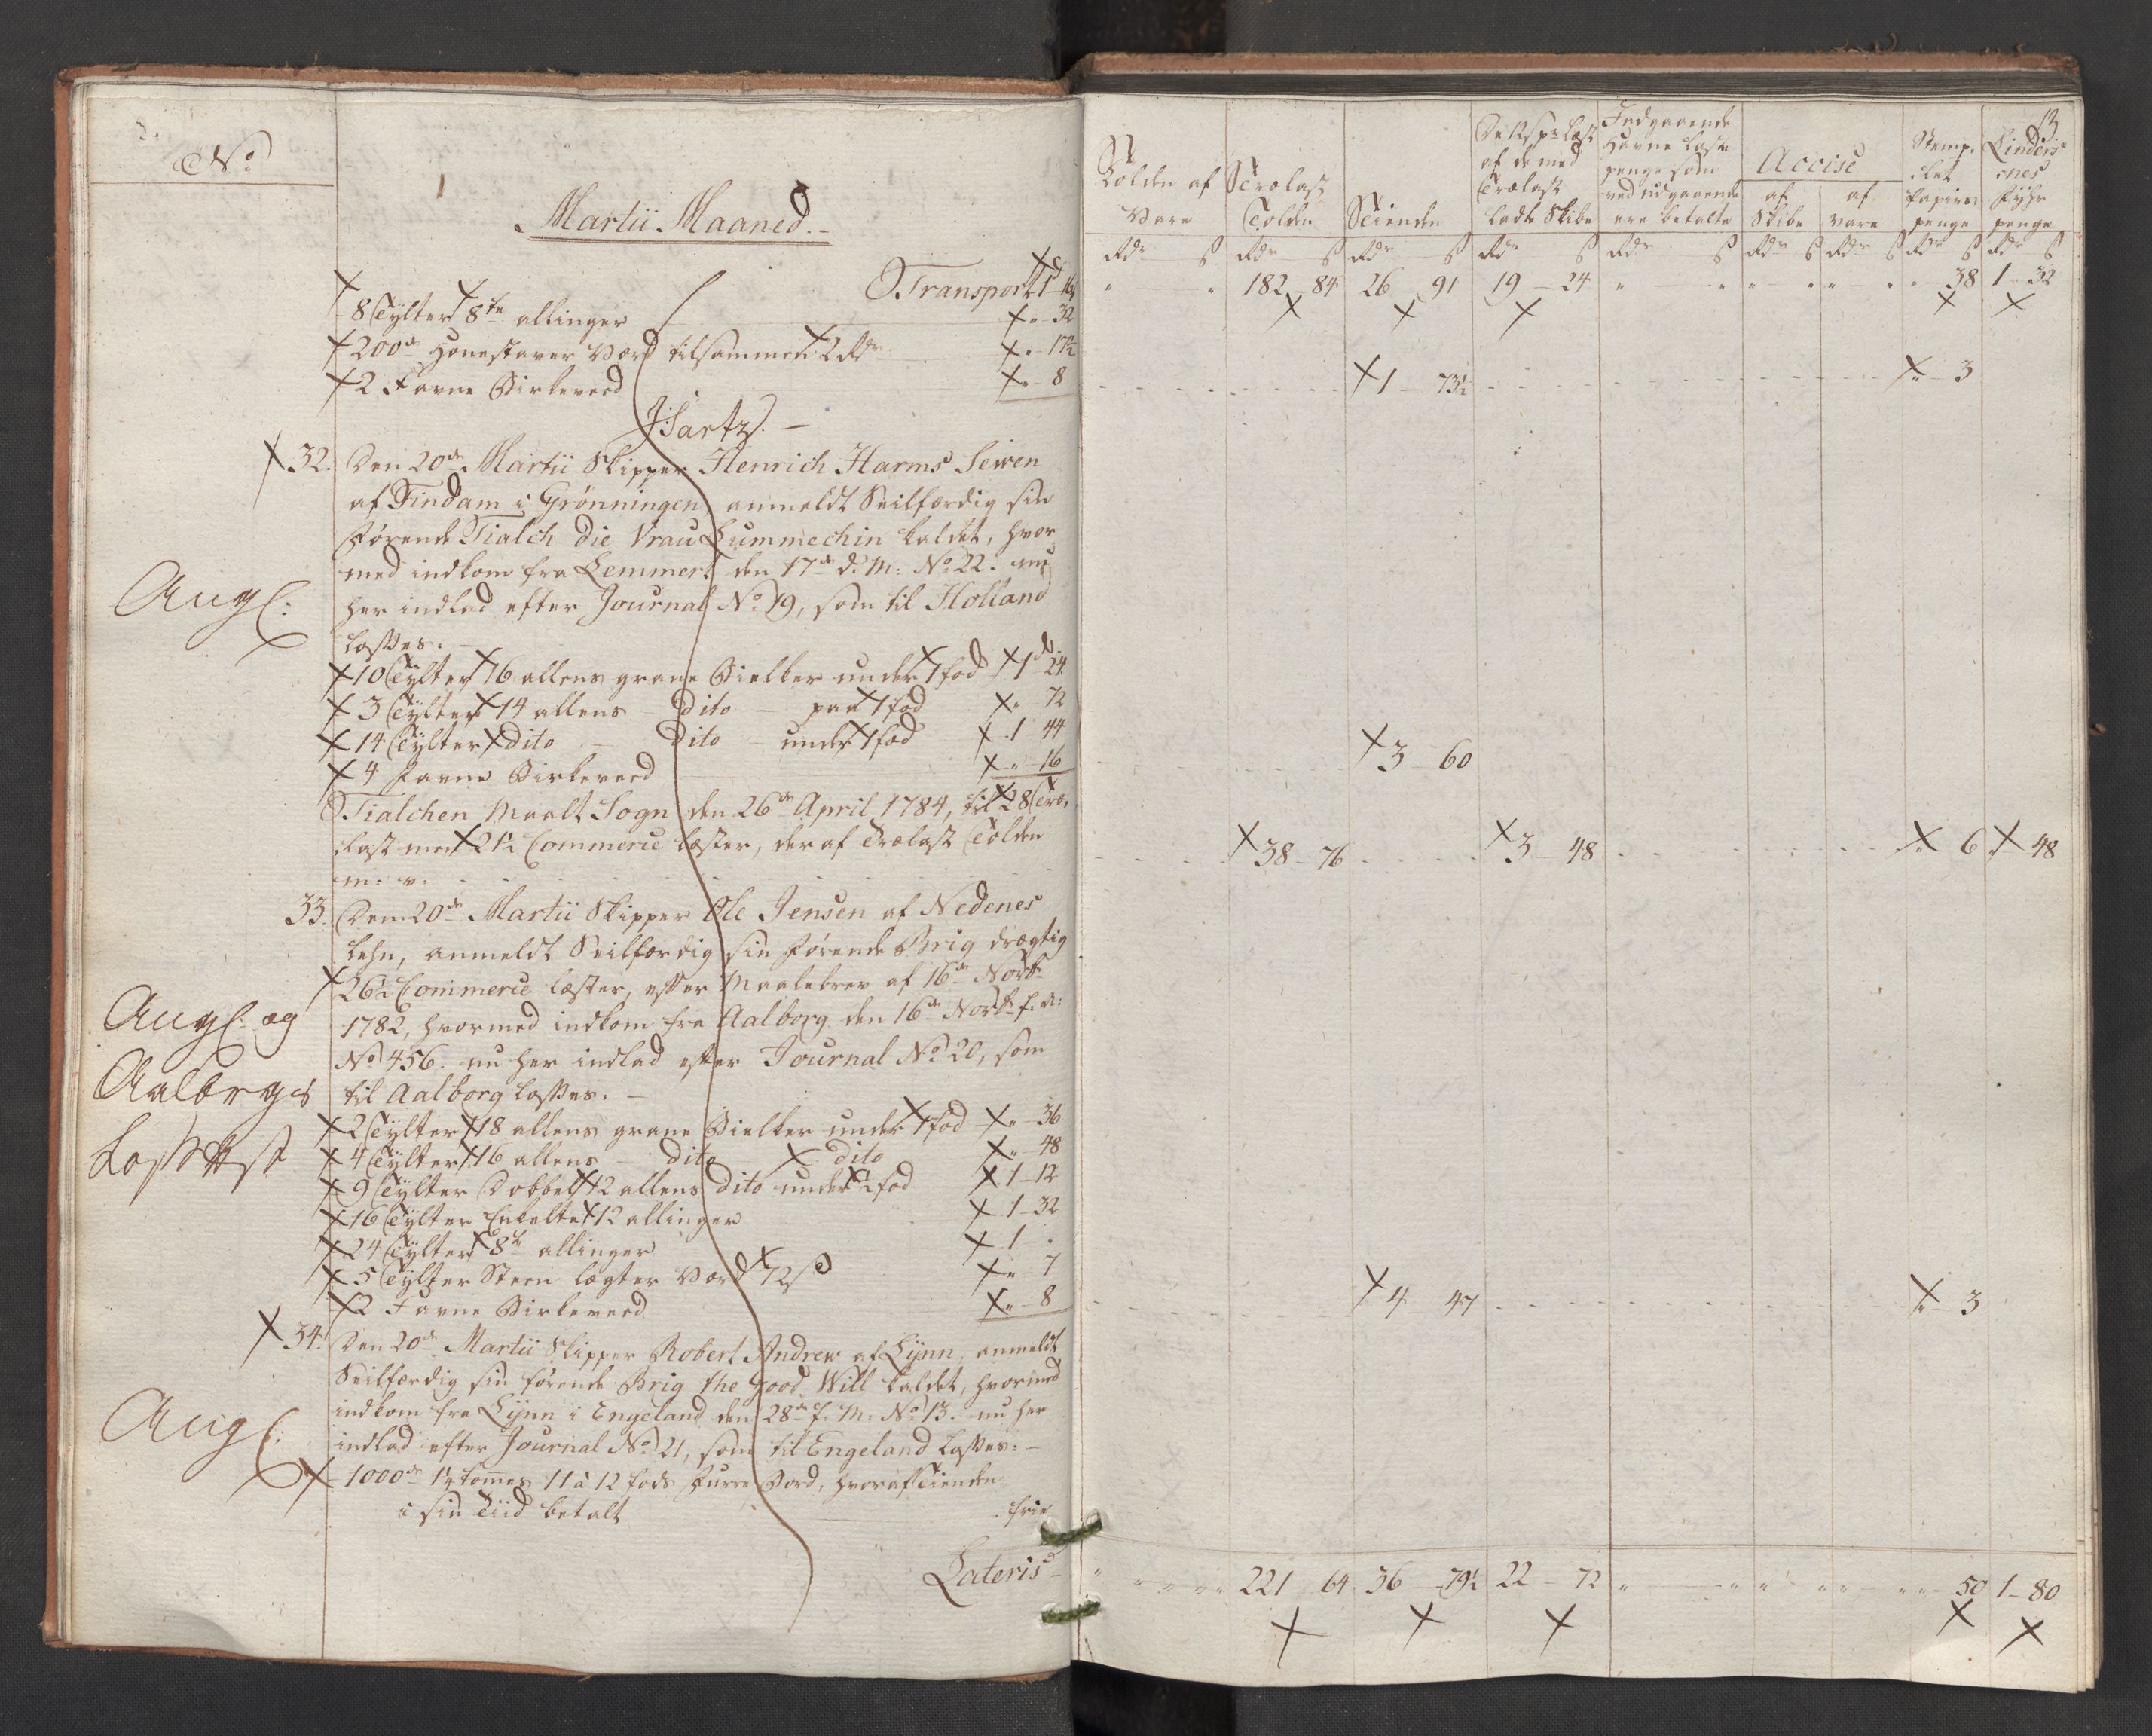 No
Martii Maaned.-
Transport 1 - 16
8 Tylter 8te allinger " 32
200de Honestaver Værd tilsammen 2 Rdr " 17½
2 Favne Birkeveed " 8
J: Sartz. -
32. Den 20de Martii Skipper Henrich Harms Sewen
af Findam i Grønningen, anmeldt Seilfærdig sin
førende Tialch Die Vrau Lummechin kaldet, hvor
med indkom fra Lemmert den 17de d: M: No 22. nu
her indlad efter Journal No 19, som til Holland
losses. -
Angl:
10 Tylter 16 allens grane Bielker under 1 fod 1 24
3 Tylter 14 allens - dito - paa 1 fod " 72
14 Tylter dito - dito - under 1 fod 1 44
4 Favne Birkeveed " 16
Tialchen Maalt Sogn den 26de April 1784, til 28 Træ-
last med 21½ Commerce læster, deraf Trælast Tolden
m: v:
33. Den 20de Martii Skipper Ole Jensen af Nedenes
Lehn, anmeldt Seilfærdig sin førende Brig drægtig
26½ Commerce læster, efter Maalebrev af 16de Novbr
1782, hvormed indkom fra Aalborg den 16de Novbr f: A:
No 456. nu her indlad efter Journal No 20, som
til Aalborg losses. -
Angl: og
Aalborgs
2 Tylter 18 allens grane Bielker under 1 fod " 36
4 Tylter 16 allens - dito dito " 48
9 Tylter Dobbelt 12 allens dito under ½ fod 1 - 12
16 Tylter Enkelte 12 allinger 1 - 32
24 Tylter 8te allinger 1 "
5 Tylter Steen lægter Værd 72 ß " 7
2 Favne Birkeveed " 8
34. Den 20de Martii Skipper Robert Andrew af Lynn, anmeldt
Seilfærdig sin førende Brig the good Will kaldet, hvormed
indkom fra Lynn i Engeland den 28de f: M: No 13. nu her
indlad efter Journal No 21, som til Engeland losses: -
Angl:
1000de 1½ tommes 11 à 12 fods Furre Bord, hvoraf Tienden
i sin Tiid betalt frie
Lateris
13
Tolden af Vare
Trælast Tolden
Tienden
af de med Trælast ladte Skibe
Indgaaende Havne Laste penge som ved udgaaende ere betalte
Accise
af Skibe
af Vare
Stemp- let Papiirs penge
Linders- nes Fyhr penge
Rdr ß Rdr ß Rdr ß Rdr ß Rdr ß Rdr ß Rdr ß Rdr ß Rdr ß
" " 182 - 84 26 91 19 - 24 " " " " " " " 38 1 - 32
1 - 73½ " 3
3 - 60
38 - 76 3 - 48 " 6 " 48
4 47 " 3
" " 221 64 36 - 79½ 22 - 72 " " " " " " " 50 1 - 80